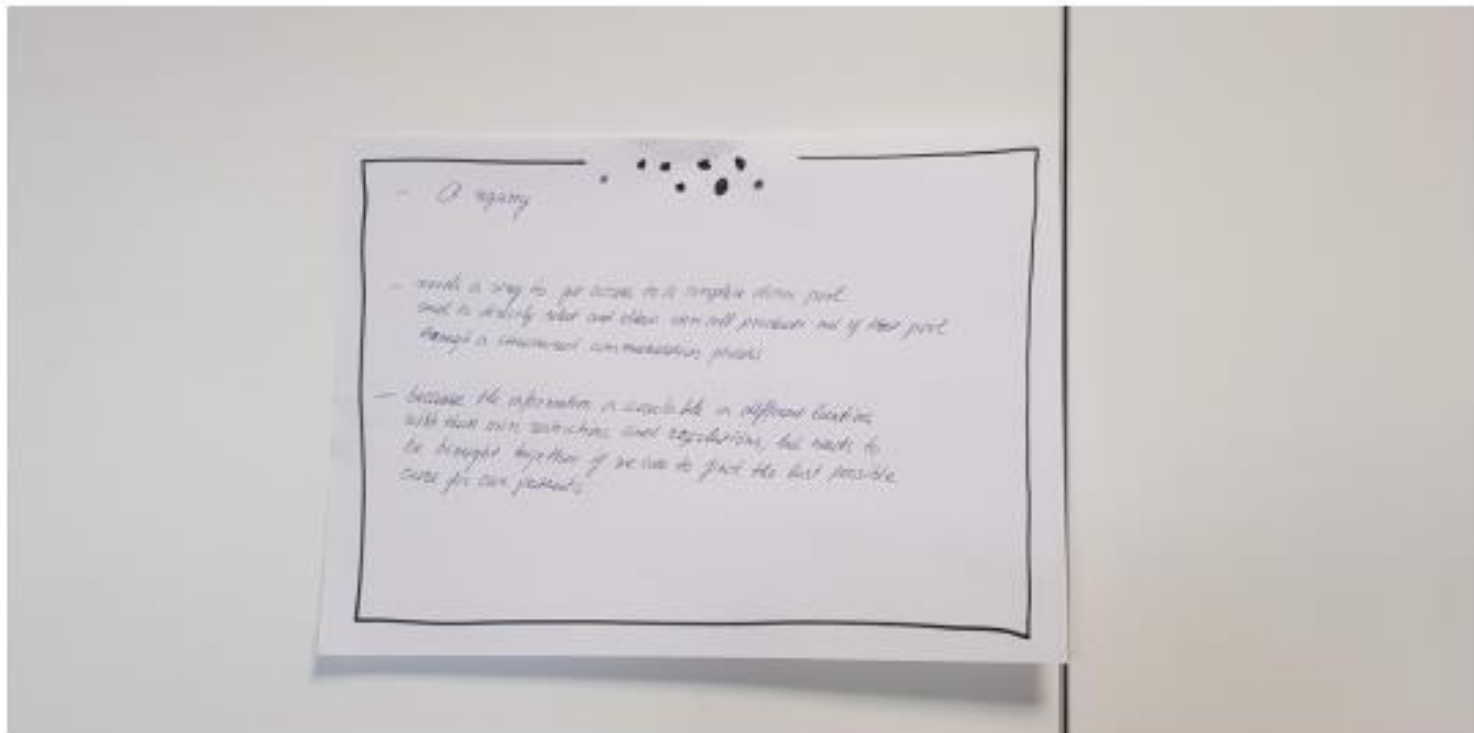 - A registry
- needs a way to get access to a complete donor pool
and to directly select and obtain stem cell products out of that pool
through a structured communication process
- because the information is available in different locations
with their own restrictions and regulations, but needs to
be brought together if we are to find the best possible
for our patients